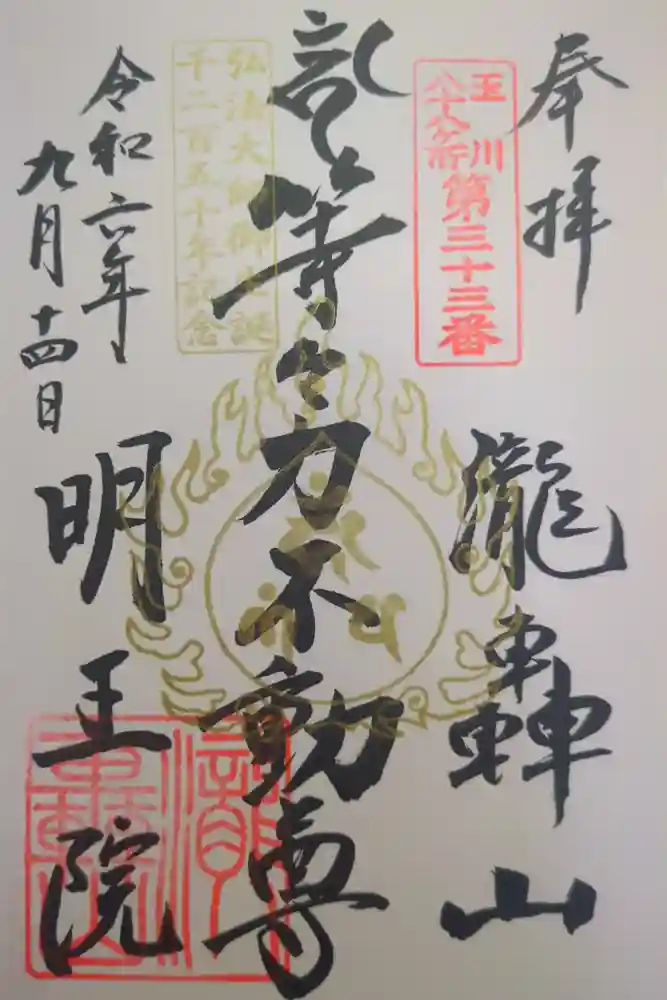 奉拝
玉川
八十八ヶ所
第三十三番
瀧轟山
等々力不動尊
弘法大師御生誕
千二百五十年記念
令和六年
九月十四日
明王院